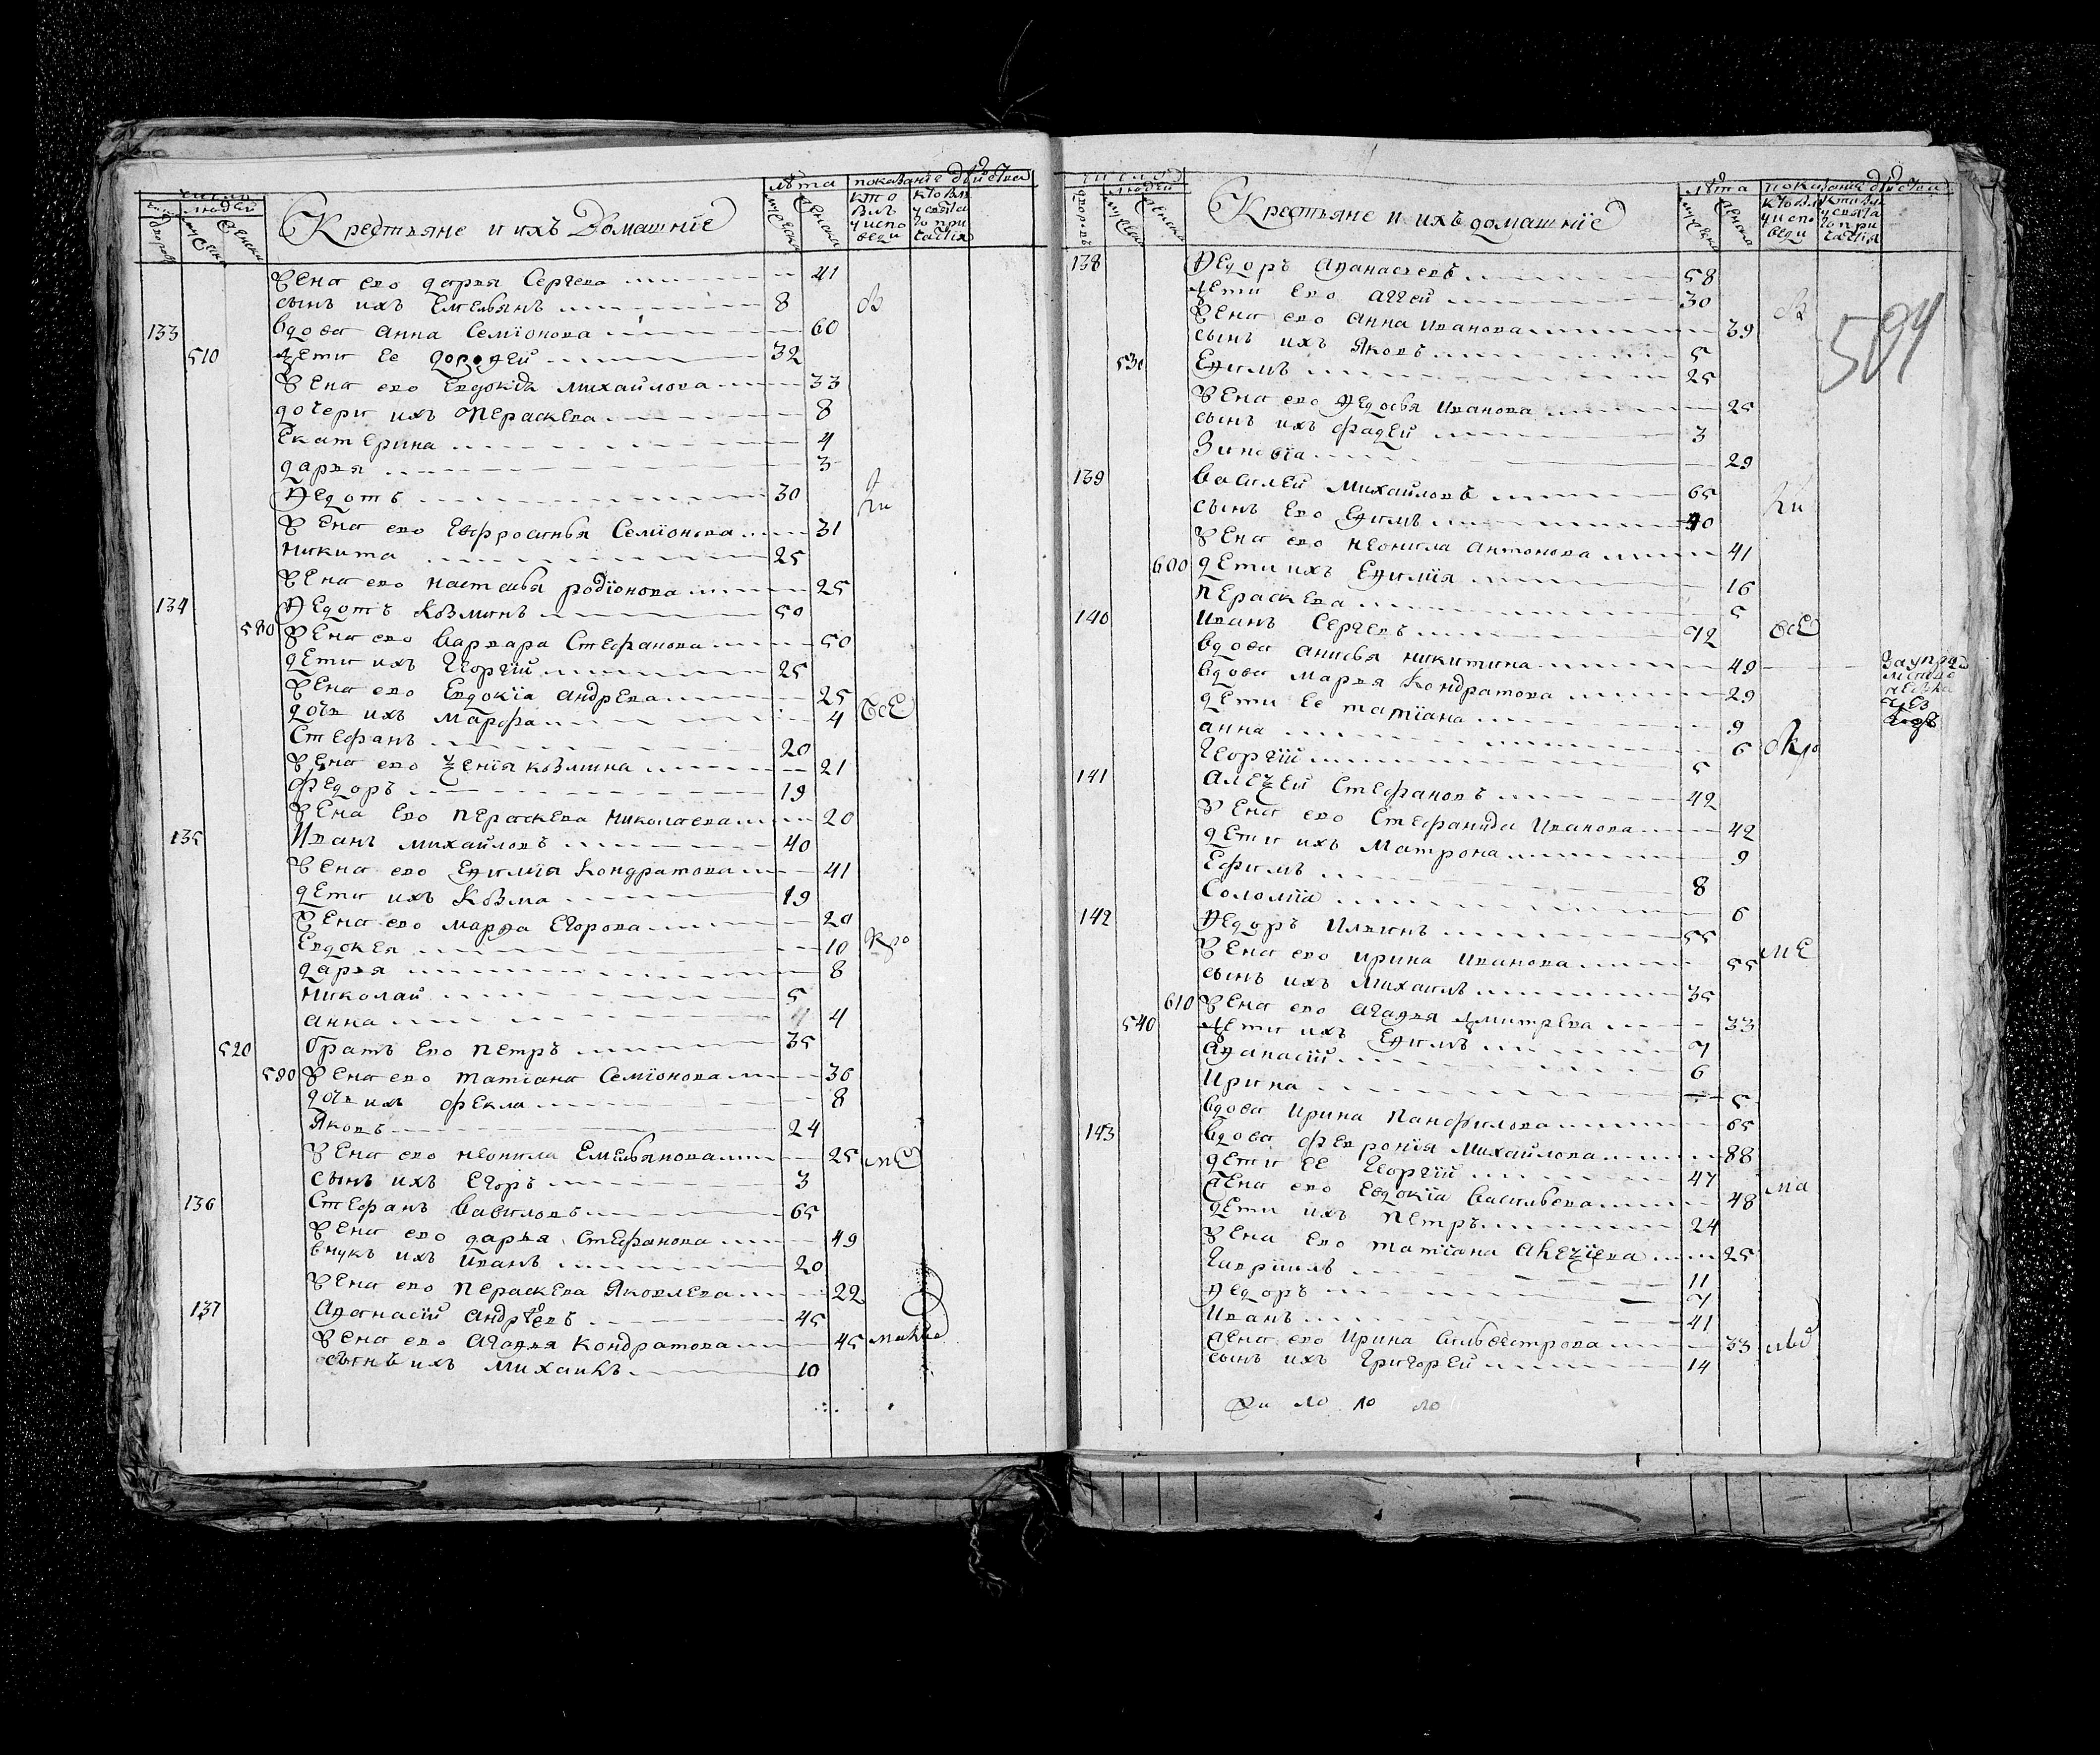 число лѣта показанїе дѣйства
людей
Крестьяне и ихъ Домашнїе
кто былъ у исповеди
кто былъ у святаго причастїя
жена ево дарья Сергеева 41
сынъ ихъ Емельянъ 8
133 вдова анна Семїонова 60
510 дети ее дороѳей 32
жена ево Евдокїа михайлова 33
дочери ихъ Параскева 8
Екатерина 4
дарья 3
Ѳедотъ 30
жена ево Евфросинья Семїонова 31
никита 25
жена ево настасья родїонова 25
134 Ѳедотъ козминъ 50
580 жена ево варвара Стефанова 50
дети ихъ Георгїй 25
жена ево Евдокїа андреева 25
дочь ихъ марфа 4
Стефанъ 20
жена ево Ѯенїя козмина 21
Федоръ 19
жена Ево пераскева николаева 20
135 Иванъ михайловъ 40
жена ево Еѳимїя кондратова 41
дети ихъ козма 19
жена ево марѳа Егорова 20
Евдокея 10
дарья 8
николай 5
анна 4
520 братъ Ево петръ 35
590 жена ево татїана Семїонова 36
дочь ихъ фекла 8
Яковъ 24
жена ево неонила Емельянова 25
сынъ ихъ Егоръ 3
136 Стефанъ вавиловъ 65
жена ево дарья Стефанова 49
внукъ ихъ иванъ 20
жена ево пераскева Яковлева 22
137 Аѳанасїй андрѣевъ 45
жена ево Агаѳья кондратова 45
сынъ ихъ михаилъ 10
число лѣта показанїе дѣйства
людей
Крестьяне и ихъ домашнїе
594
138 Ѳедоръ аѳанасьевъ 58
дети ево аггей 30
жена ево анна иванова 39
сынъ ихъ Яковъ 5
530 Еѳимъ 25
жена ево Ѳедосья иванова 25
сынъ ихъ фадей 3
Зиновїа 29
139 василей михайловъ 65
сынъ ево Еѳимъ 40
жена ево неонила антонова 41
600 дети ихъ Еѳимїя 16
пераскева 5
140 иванъ Сергеевъ 72
вдова анисья никитина 49
вдова марья кондратова 29
дети ее татїана 9
анна 6
Георгїй 5
141 алеѯей Стефановъ 42
жена ево Стефанида иванова 42
дети ихъ матрона 9
Ефимъ 8
Соломїа 6
142 Ѳедоръ ильинъ 55
жена ево ирина иванова 55
сынъ ихъ михаилъ 35
610 жена ево агаѳья дмитреева 33
540 дети ихъ Еѳимъ 7
аѳанасїй 6
ирина 5
вдова ирина панфилова 65
143 вдова февронїя михайлова 88
дети ее Георгїй 47
жена ево Евдокїа васильева 48
дети ихъ петръ 24
жена Ево татїана алеѯїева 25
Гаврїилъ 11
Ѳедоръ 7
иванъ 41
жена ево ирина Сильвестрова 33
сынъ ихъ Григорей 14